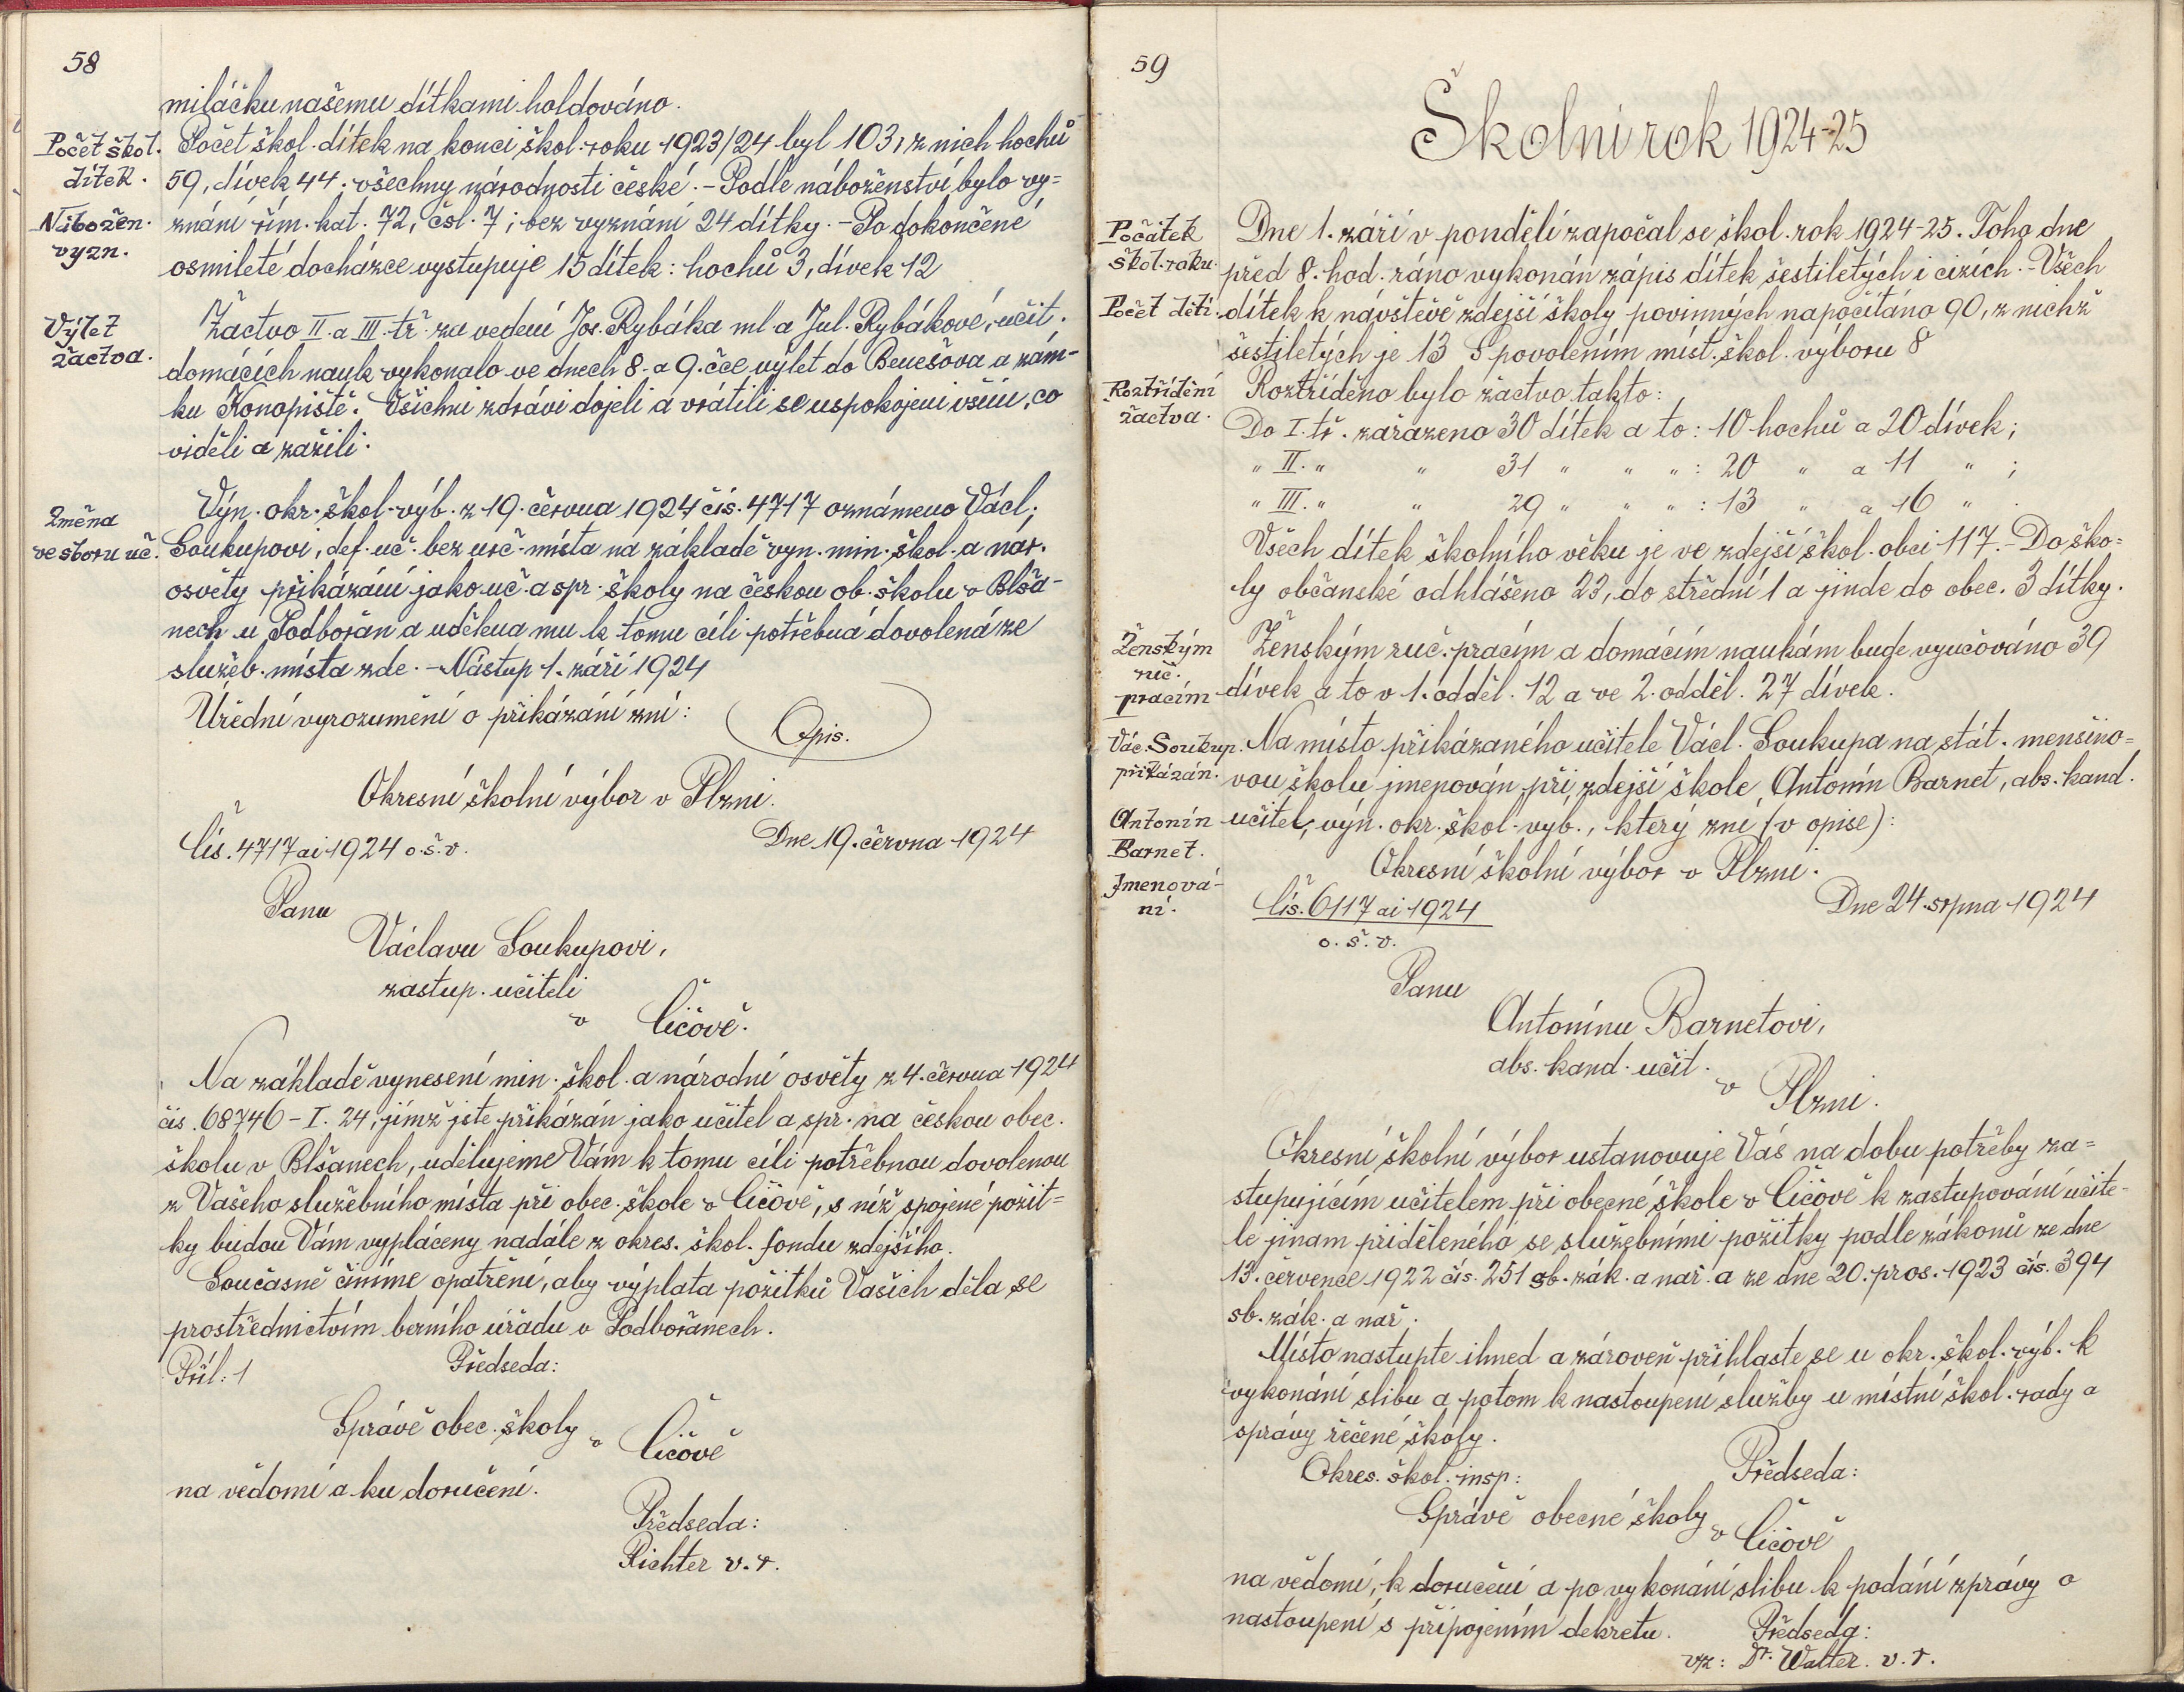 58
miláčku našemu dítkami holdováno.
Počet škol. dítek.
Počet škol. dítek na konci škol. roku 1923/24 byl 103, z nich hochů
59, dívek 44; všechny národnosti české. - Podle náboženství bylo vy=
Nábožen. vyzn.
znání řím. kat. 72, čsl. 7; bez vyznání 24 dítky. - Po dokončené
osmileté docházce vystupuje 15 dítek: hochů 3, dívek 12
Výlet žactva.
Žactvo II. a III. tř. za vedení Jos. Rybáka ml a Jul. Rybákové, učit.
domácích nauk vykonalo ve dnech 8. a 9. čce výlet do Benešova a zám-
ku Konopiště. Všichni zdrávi dojeli a vrátili se uspokojeni vším, co
viděli a zažili.
Změna ve sboru uč.
Výn. okr. škol. výb. z 19. června 1924 čís. 4717 oznámeno Václ.
Soukupovi, def. uč. bez urč. místa na základě vyn. min. škol. a nár.
osvěty přikázání jako uč. a spr. školy na českou ob. školu v Blša-
nech u Podbořan a udělena mu k tomu cíli potřebná dovolená ze
služeb. místa zde. - Nástup 1. září 1924
Úřední vyrozumění o přikázání zní:
Opis.
Okresní školní výbor v Plzni.
Čís. 4717 ai 1924 o.š.v.
Dne 19. června 1924
Panu
Václavu Soukupovi,
zastup. učiteli
v Čičově.
Na základě vynesení min. škol. a národní osvěty z 4. června 1924
čís. 68746 - I. 24, jímž jste přikázán jako učitel a spr. na českou obec.
školu v Blšanech, udělujeme Vám k tomu cíli potřebnou dovolenou
z Vašeho služebního místa při obec. škole v Čičově, s níž spojené požit=
ky budou Vám vypláceny nadále z okres. škol. fondu zdejšího.
Současně činíme opatření, aby výplata požitků Vašich děla se
prostřednictvím berního úřadu v Podbořanech.
Příl: 1
Předseda:
Správě obec. školy
v Čičově
na vědomí a ku doručení.
Předseda:
Richter v.r.
59
Školní rok 1924-25
Počátek škol. roku.
Dne 1. září v pondělí započal se škol. rok 1924-25. Toho dne
před 8. hod. ráno vykonán zápis dítek šestiletých i cizích. - Všech
Počet dětí.
dítek k návštěvě zdejší školy povinných napočítáno 90, z nichž
šestiletých je 13 S povolením míst. škol. výboru 8
Roztřídění žactva.
Roztříděno bylo žactvo takto:
Do I. tř. zařazeno 30 dítek a to: 10 hochů a 20 dívek;
" II. " " 31 " " " : 20 " a 11 " ;
" III. " " 29 " " " : 13 " a 16 " .
Všech dítek školního věku je ve zdejší škol. obci 117. - Do ško=
ly občanské odhlášeno 23, do střední 1 a jinde do obec. 3 dítky.
Ženským ruč. pracím
Ženským ruč. pracím a domácím naukám bude vyučováno 39
dívek a to v 1. odděl. 12 a ve 2. odděl. 27 dívek.
Vác. Soukup. přikázán.
Na místo přikázaného učitele Václ. Soukupa na stát. menšino=
vou školu jmenován při zdejší škole Antonín Barnet, abs. kand.
Antonín Barnet. Jmenová-ní.
učitel, výn. okr. škol. výb., který zní (v opise):
Okresní školní výbor v Plzni.
Čís. 6117 ai 1924
o.š.v.
Dne 24. srpna 1924
Panu
Antonínu Barnetovi,
abs. kand. učit.
v Plzni.
Okresní školní výbor ustanovuje Vás na dobu potřeby za=
stupujícím učitelem při obecné škole v Čičově k zastupování učite-
le jinam přiděleného se služebními požitky podle zákonů ze dne
13. července 1922 čís. 251 sb. zák. a nař. a ze dne 20. pros. 1923 čís. 394
sb. zák. a nař.
Místo nastupte ihned a zároveň přihlaste se u okr. škol. výb. k
vykonání slibu a potom k nastoupení služby u místní škol. rady a
správy řečené školy.
Okres. škol. insp:
Předseda:
Správě obecné školy
v Čičově
na vědomí, k doručení a po vykonání slibu k podání zprávy o
nastoupení s připojením dekretu.
Předseda:
vz: Dr. Walter. v.r.